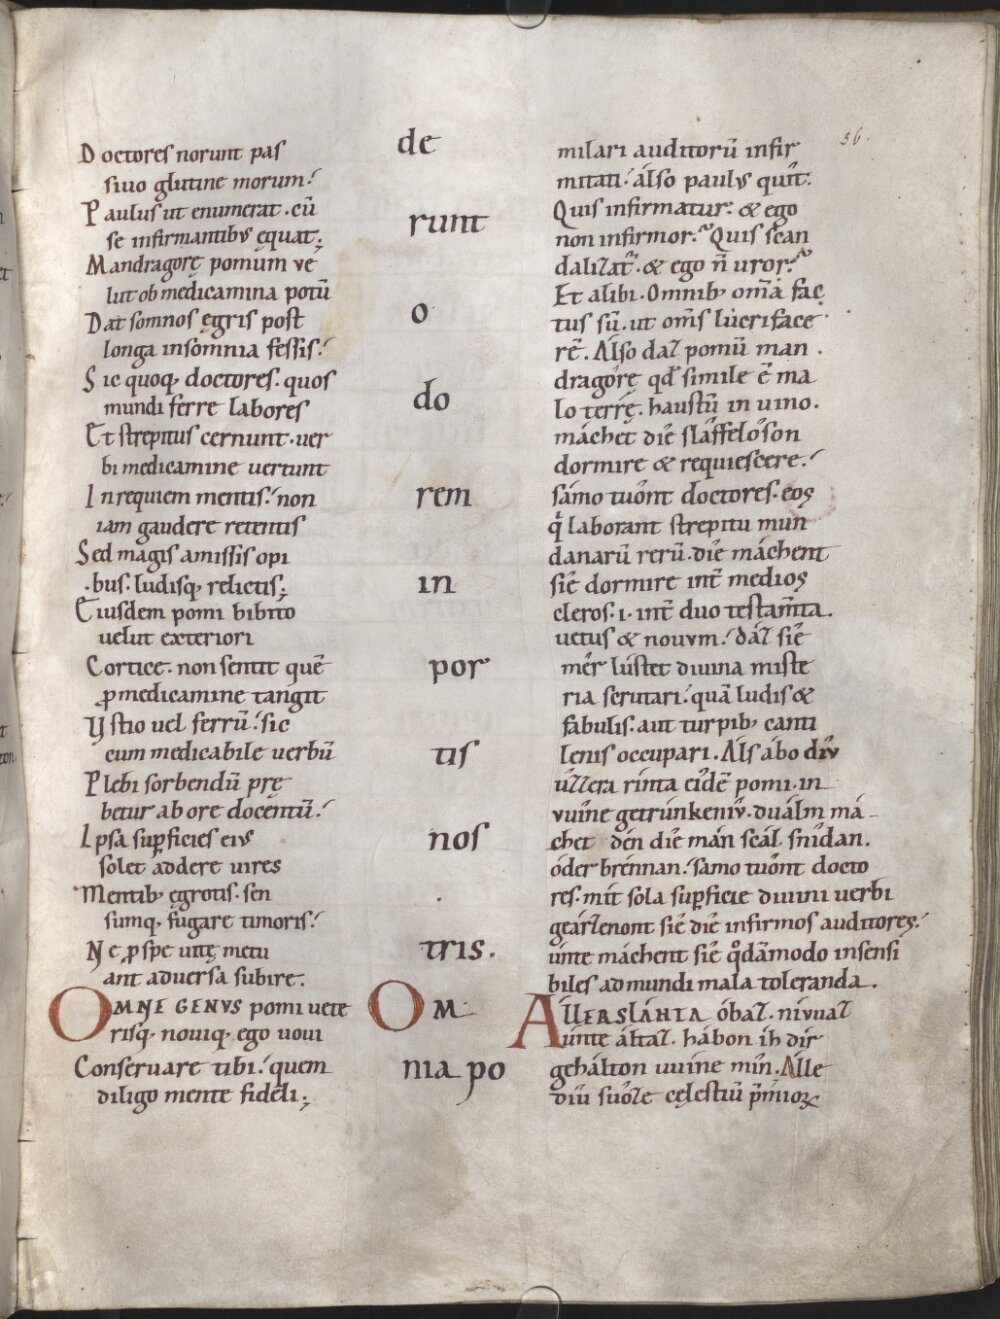 56.
Doctores norunt pas
siuo glutine morum.
Paulus ut enumerat. cū
se infirmantibꝰ ęquat;
Mandragorę pomum ve
lut ob medicamina potū
Dat somnos ęgris post
longa insomnia fessis.
Sic quoqꝫ doctores. quos
mundi ferre labores
Et strepitus cernunt. ver
bi medicamine vertunt
In requiem mentis. non
iam gaudere retentis
Sed magis amissis opi
bus. ludisqꝫ relictis;
Eiusdem pomi bibito
uelut exteriori
Cortice. non sentit quē
ꝓ medicamine tangit
Ystio vel ferrū. sic
cum medicabile verbū
Plebi sorbendū prę
betur ab ore docentū.
Ipsa suꝑficies eiꝰ
solet addere vires
Mentibꝫ ęgrotis. sen
sumqꝫ fugare timoris.
Ne ꝓ spe vitę metu
ant aduersa subire.
OMNE GENVS pomi vete
risqꝫ nouiqꝫ ego uoui
Conseruare tibi. quem
diligo mente fideli;
de
runt
o
do
rem
in
por
tis
nos
.
tris.
OM
nia po
milari auditorū infir
mitati. álso paulꝰ quit.
Quis infirmatur. & ego
non infirmor. Quis scan
dalizat̄. & ego n̄ uror.
Et alibi. Omnibꝫ om̄a fac
tus sū. ut om̄s lucriface
rē. Álso daz pomū man
dragorę qđ simile ē ma
lo terrę. haustū in uino.
máchet dîe slâffelôson
dormire & requiescere.
sámo tûont doctores. eos
q̇ laborant strepitu mun
danarū rerū. dîe máchent
sîe dormire int̄ medios
cleros. i. int̄ duo testam̄ta.
uetus & nouum. dáz sîe
mêr lústet diuina miste
ria scrutari. quā ludis &
fabulis. aut turpibꝫ canti
lenis occupari. Áls ábo diu
ûzzera rinta eiusdē pomi. in
vuîne getrúnkeniu. duálm má
chet den dîe mán scál snîdan.
óder brénnan. sámo tûont docto
res. mit sola suꝑficie diuini uerbi
geárzenont sîe dîe infirmos auditores.
únte máchent sîe q̊dāmodo insensi
biles ad mundi mala toleranda.
ALLERSLÁHTA óbaz. níuuaz
iúnte áltaz. hábon ih dir
gehálton uuine mîn. Álle
diu suôze cęlestiū p̄mioꝝ